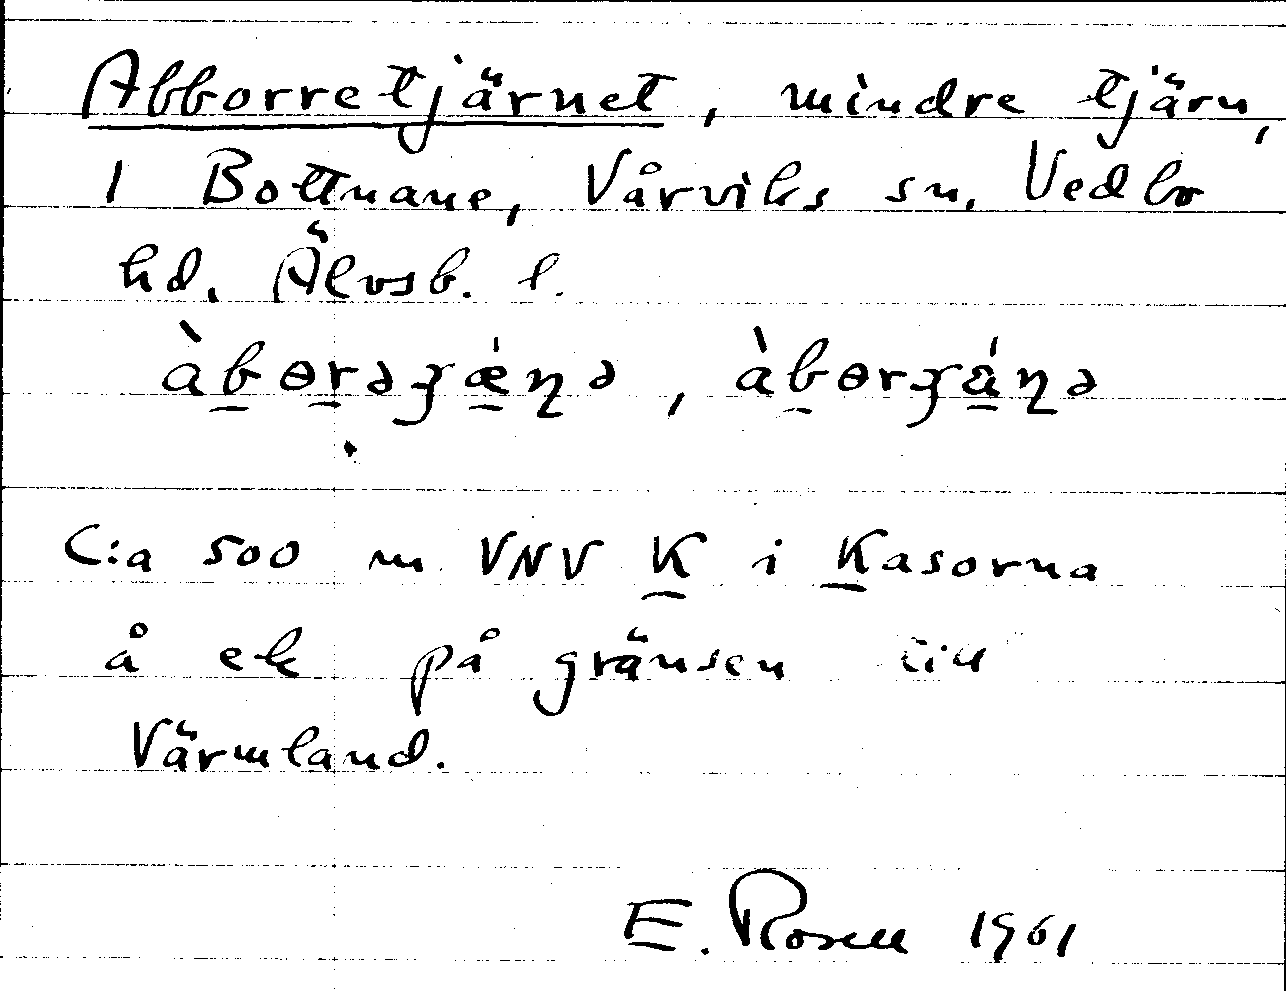 Abborretjärnet, mindre tjärn,
1 Bottnane, Vårviks sn, Vedbo
hd. Älvsb. l.
àbɵrəʒǽnə, àbɵrʒánə
C:a 500 m VNV K i Kasorna
å ek på gränsen till
Värmland.
E. Rosell 1961